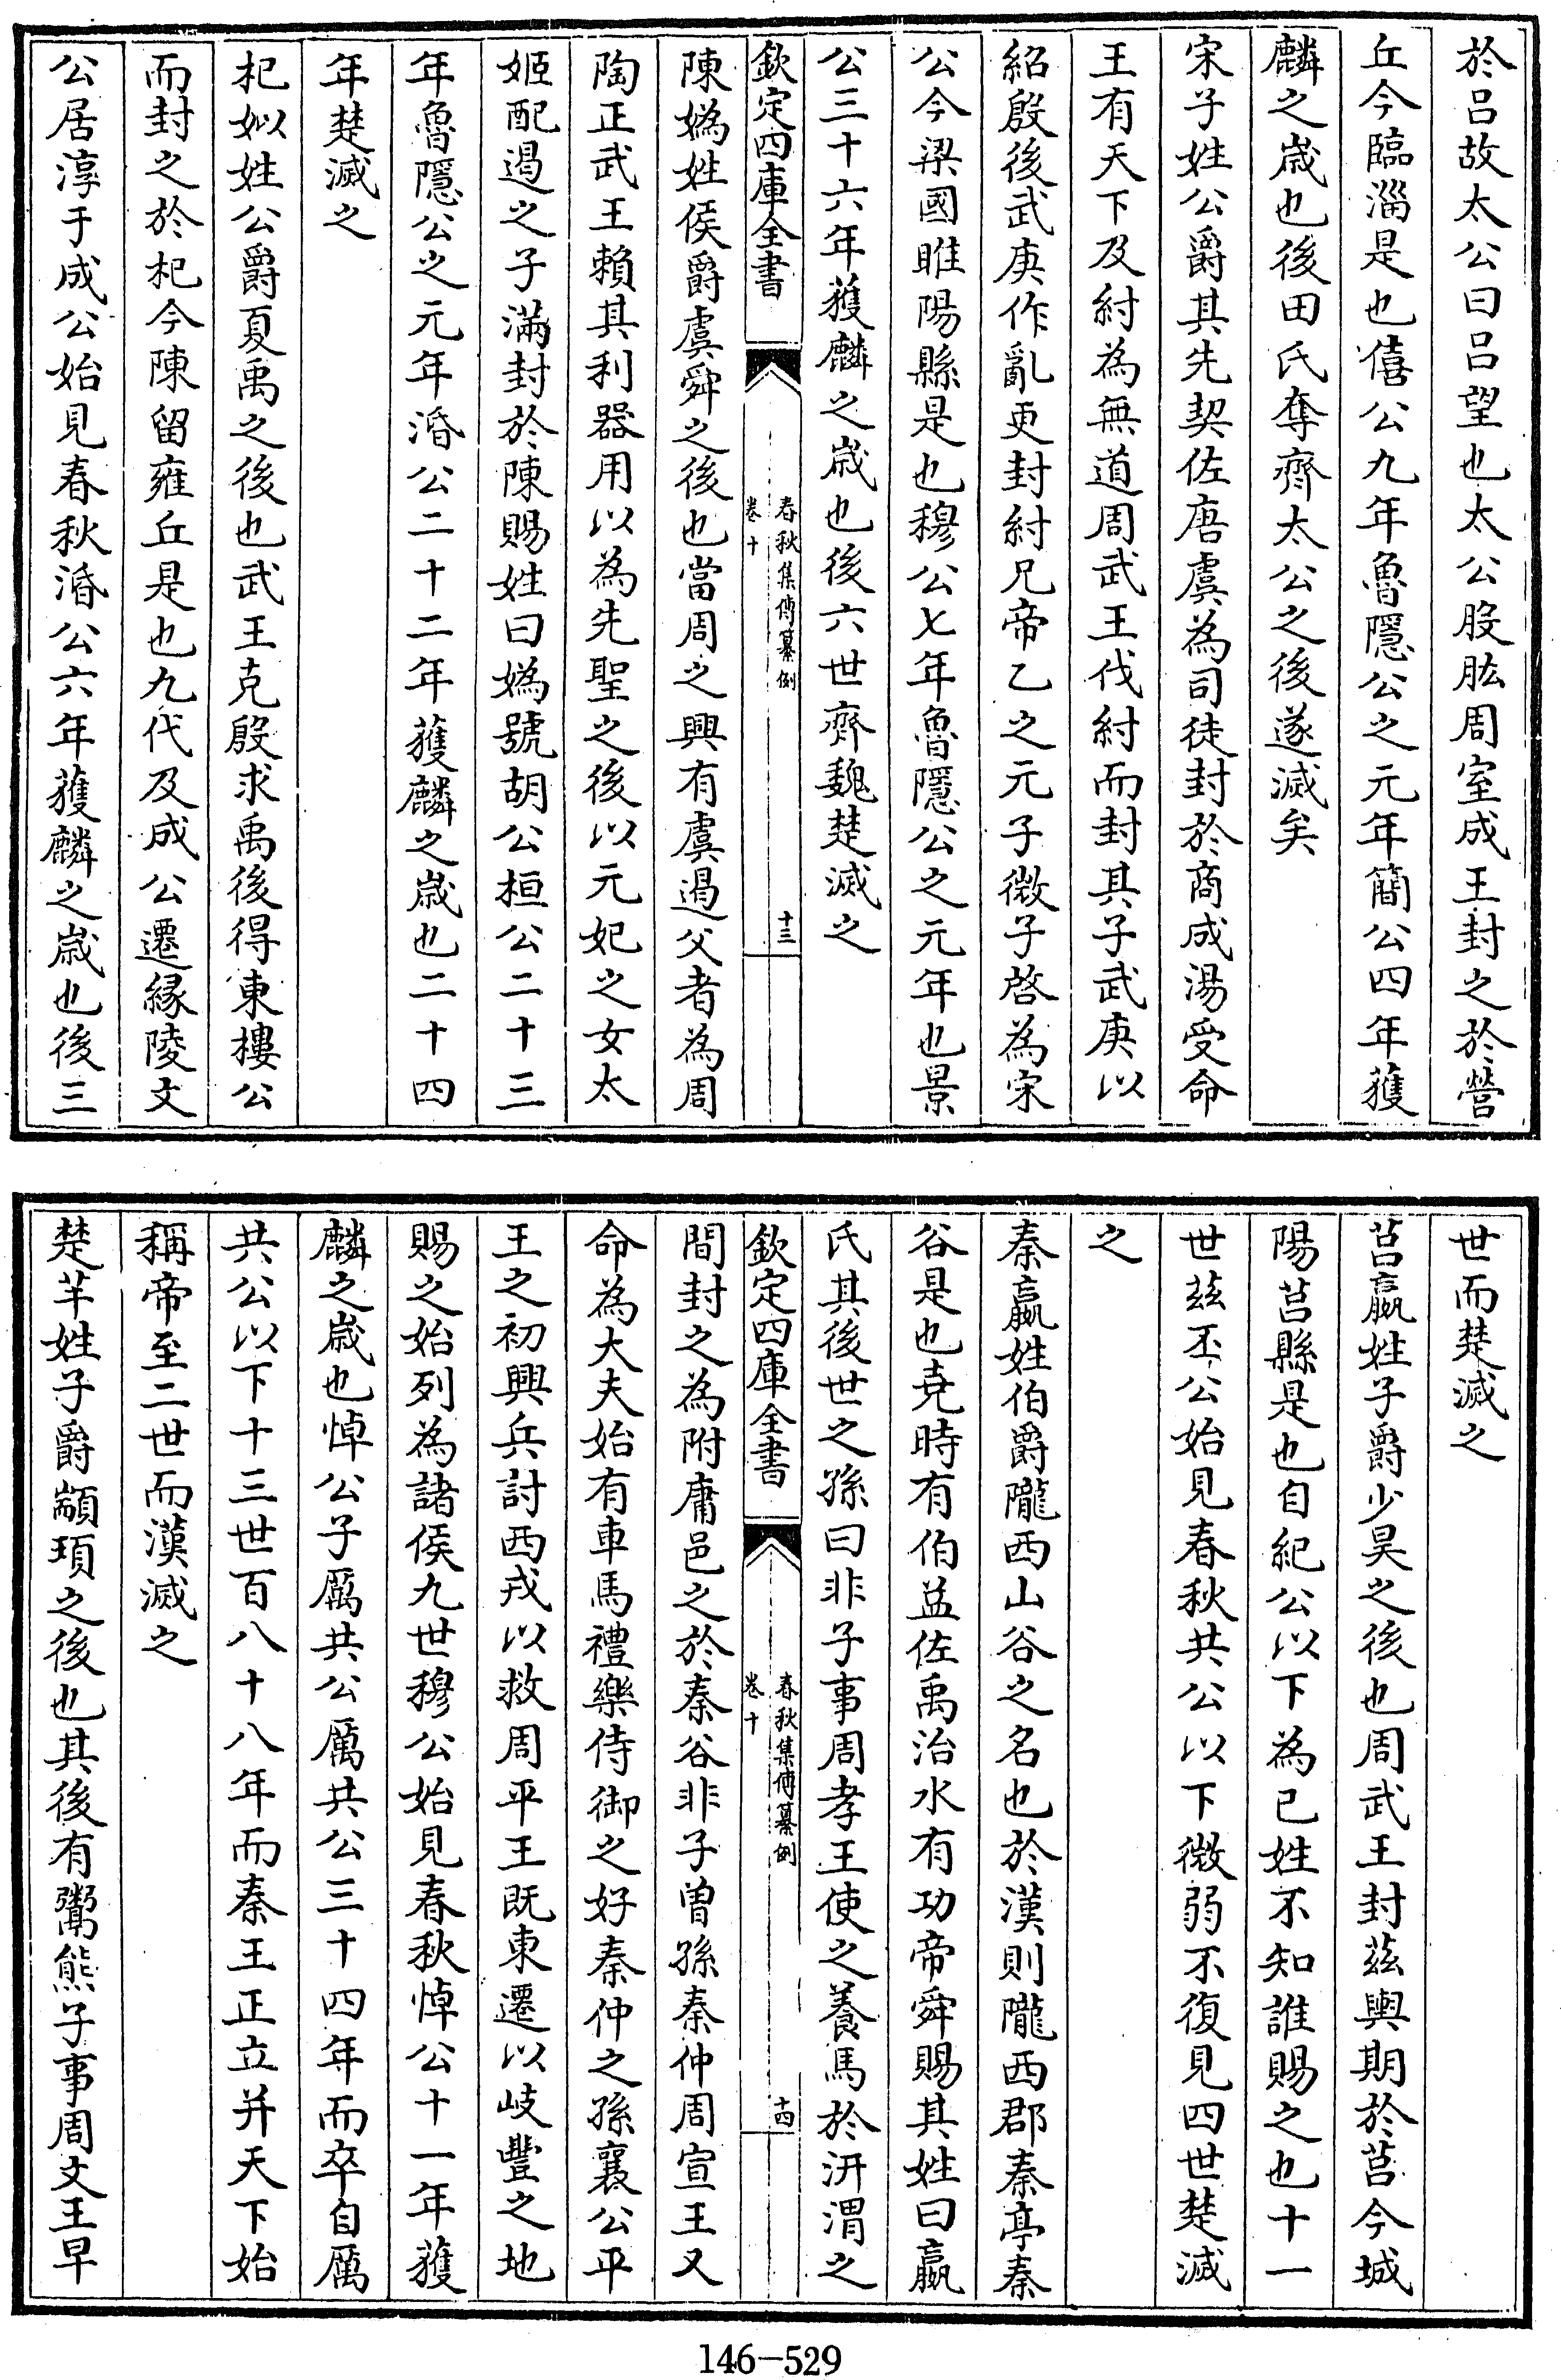 於吕故太公曰吕望也太公股肱周室成王封之於營
丘今臨淄是也僖公九年魯隱公之元年簡公四年獲
麟之歳也後田氏奪齊太公之後遂滅矣
宋子姓公爵其先契佐唐虞為司徒封於商成湯受命
王有天下及紂為無道周武王伐紂而封其子武庚以
紹殷後武庚作亂更封紂兄帝乙之元子微子啓為宋
公今梁國睢陽縣是也穆公七年魯隱公之元年也景
公三十六年獲麟之歳也後六世齊魏楚滅之
欽定四庫全書
春秋集傳纂例
卷十
十三
陳媯姓侯爵虞舜之後也當周之興有虞遏父者為周
陶正武王賴其利器用以為先聖之後以元妃之女太
姬配遏之子滿封於陳賜姓曰媯號胡公桓公二十三
年魯隱公之元年湣公二十二年獲麟之歳也二十四
年楚滅之
杞姒姓公爵夏禹之後也武王克殷求禹後得東樓公
而封之於杞今陳留雍丘是也九代及成公遷緣陵文
公居淳于成公始見春秋湣公六年獲麟之歳也後三
世而楚滅之
莒嬴姓子爵少昊之後也周武王封兹輿期於莒今城
陽莒縣是也自紀公以下為已姓不知誰賜之也十一
世兹丕公始見春秋共公以下微弱不復見四世楚滅
之
秦嬴姓伯爵隴西山谷之名也於漢則隴西郡秦亭秦
谷是也堯時有伯益佐禹治水有功帝舜賜其姓曰嬴
氏其後世之孫曰非子事周孝王使之養馬於汧渭之
欽定四庫全書
春秋集傳纂例
卷十
十四
間封之為附庸邑之於秦谷非子曽孫秦仲周宣王又
命為大夫始有車馬禮樂侍御之好秦仲之孫襄公平
王之初興兵討西戎以救周平王既東遷以岐豐之地
賜之始列為諸侯九世穆公始見春秋悼公十一年獲
麟之歳也悼公子厲共公厲共公三十四年而卒自厲
共公以下十三世百八十八年而秦王正立并天下始
稱帝至二世而漢滅之
楚芊姓子爵顓頊之後也其後有鬻熊子事周文王早
146-529